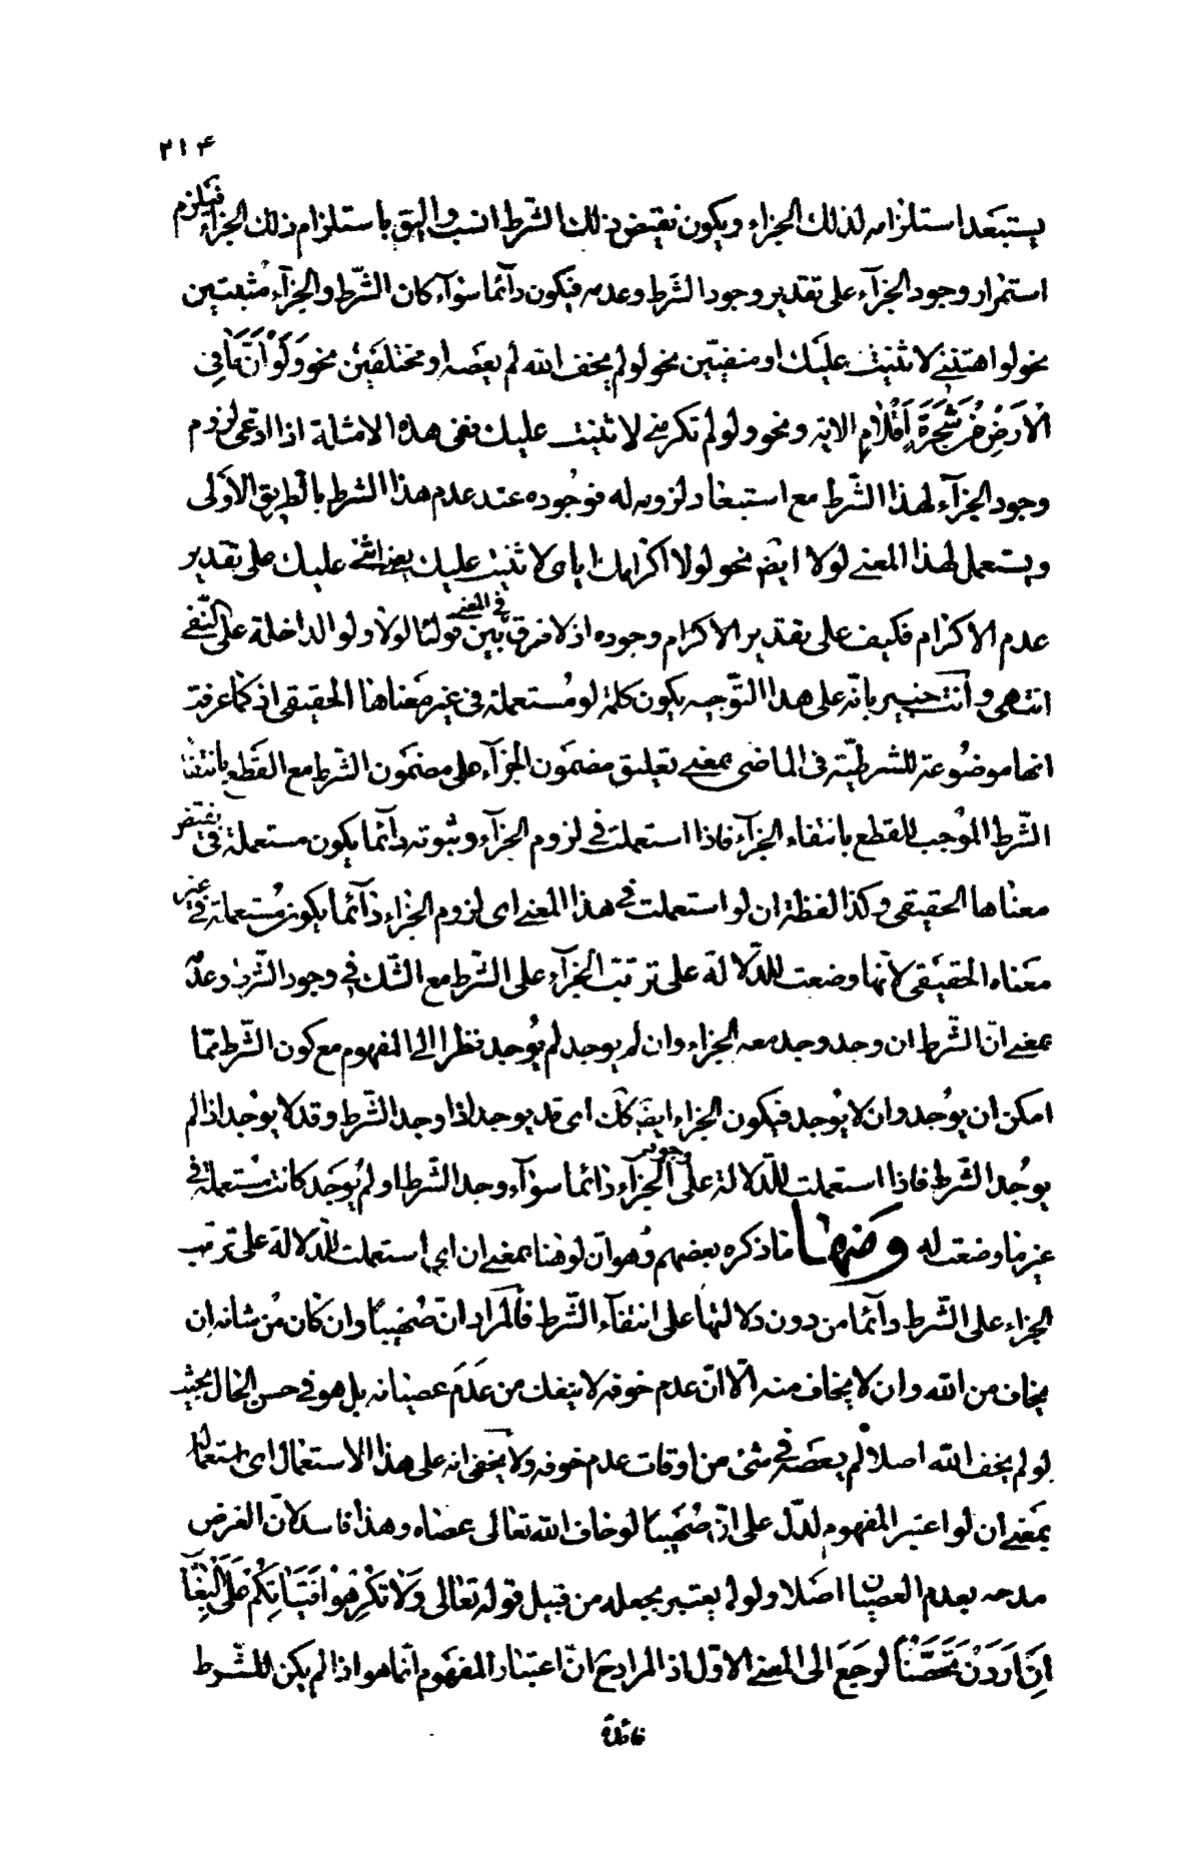 ٢١۴
يستبعد استلزامه لذلك الجزاء ويكون نقيض ذلك الشّرط انسب واليق باستلزام ذلك الجزاء فيلزم
استمرار وجود الجزآء على تقدير وجود الشّرط وعدمه فيكون دآئما سوآء كان الشّرط والجزآء مُثبتين
نحو لو اهنتنى لاثنيت عليك او منفيّين نحو لو لم يخف الله لم يعصه او مختلفين نحو وَلَوْ اَنَّ مٰا فِى
اْلاَرْضِ مِنْ شَجَرَةٍ اَقْلاٰمٌ الاية ونحو ولو لم تكرمنى لاثنيت عليك ففى هذه الامثلة اذا ادعى لزوم
وجود الجزآء لهذا الشّرط مع استبعاد لزومه له فوجُوده عند عدم هذا الشرط بالطريق الاَولى
ويستعمل لهذا المعنى لولا ايضَ نحو لولا اكرامك اياى لاثنيت عليك يعنى اثنى عليك على تقدير
عدم الاكرام فكيف على تقدير الاكرام وجوده اذ لا فرق فى المعنى بين قولنا لولا ولو الداخلة على النّفى
انتهى وانت خبير بانّه على هذا التّوجيه يكون كلمة لو مُستعملة فى غير مَعناها الحقيقى اذ كما عرفت
انها موضُوعة للشرطيّة فى الماضى بمعنى تعليق مضمَون الجزآء على مضمَون الشّرط مع القَطع بانتفاء
الشّرط الموُجب للقطع بانتفاء الجزآء فاذا استعملت فى لزوم الجزآء وثبوته دآئما يكون مستعملة فى نقيض
معناها الحقيقى وكذا لفظة ان لو استعملت فى هذا المعنى اى لزوم الجزاء دآئما يكون مُستعملة فى غير
مَعناه الحقيقَى لانّها وضعت للدّلالة على ترتّب الجزآء على الشّرط مع الشّك فى وجود الشّرط وعدمه
بمعنى انّ الشّرط ان وجد وجد معه الجزاء وان لم يوجد لم يُوجد نظرا الى المفهوم مع كون الشّرط ممّا
امكن ان يوُجد وان لا يُوجد فيكون الجزاء ايضَ كك اى قد يوجد اذا وجد الشّرط وقد لا يوُجد اذا لم
يوجُد الشّرط فاذا استعملت للدّلالة على وجوب الجزآء دائما سوآء وجد الشّرط او لم يُوجَد كانت مُستعملة فى
غير ما وضعت له ومنها ما ذكره بعضهم وُهو انّ لو هُنا بمعنى ان اى استعملت للدلالة على ترتب
الجزاء على الشّرط دآئما من دون دلالتها على انتفآء الشّرط فالمراد انّ صُهَيبًا وان كان مُن شانه ان
يخاف من الله وان لا يخاف منه الّا انّ عدم خوفه لا ينفك من عَدَم عصيانه بل هو فى حسن الحال بحيث
لو لم يخف الله اصلاً لم يعصَه فى شئ من اوقات عدم خوفه ولا يخفى انه على هذا الاستعمال اى استعمالها
بمَعنى ان لو اعتبر المفهوم لدّل على انّ صُهَيبًا لو خاف الله تعالى عصاه وهذا فاسد لانّ الغرض
مدحه بعدم العصيان اصَلا ولو لم يعتبر بجعله من قبيل قوله تعالى وَلاٰ تُكْرِهُوا فَتَيٰاتِكُمْ عَلَى الْبِغٰآءِ
اِنْ اَرَدْنَ تَحَصُّنًا لرجَعَ الى المعنى الاوّل اذ المراد ح انّ اعتبار المفهَوم انّما هو اذا لم يكن للشّرط
فائدة